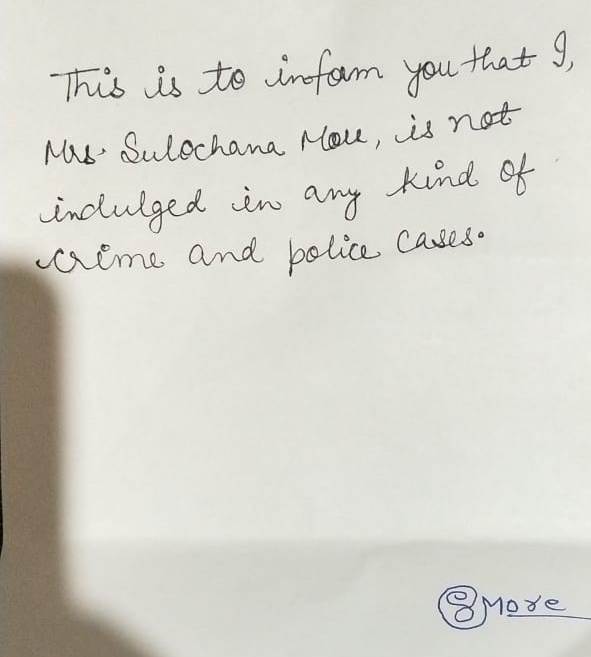 This is to inform you that I,
Mrs. Sulochana More, is not
indulged in any kind of
crime and police cases.
SMore